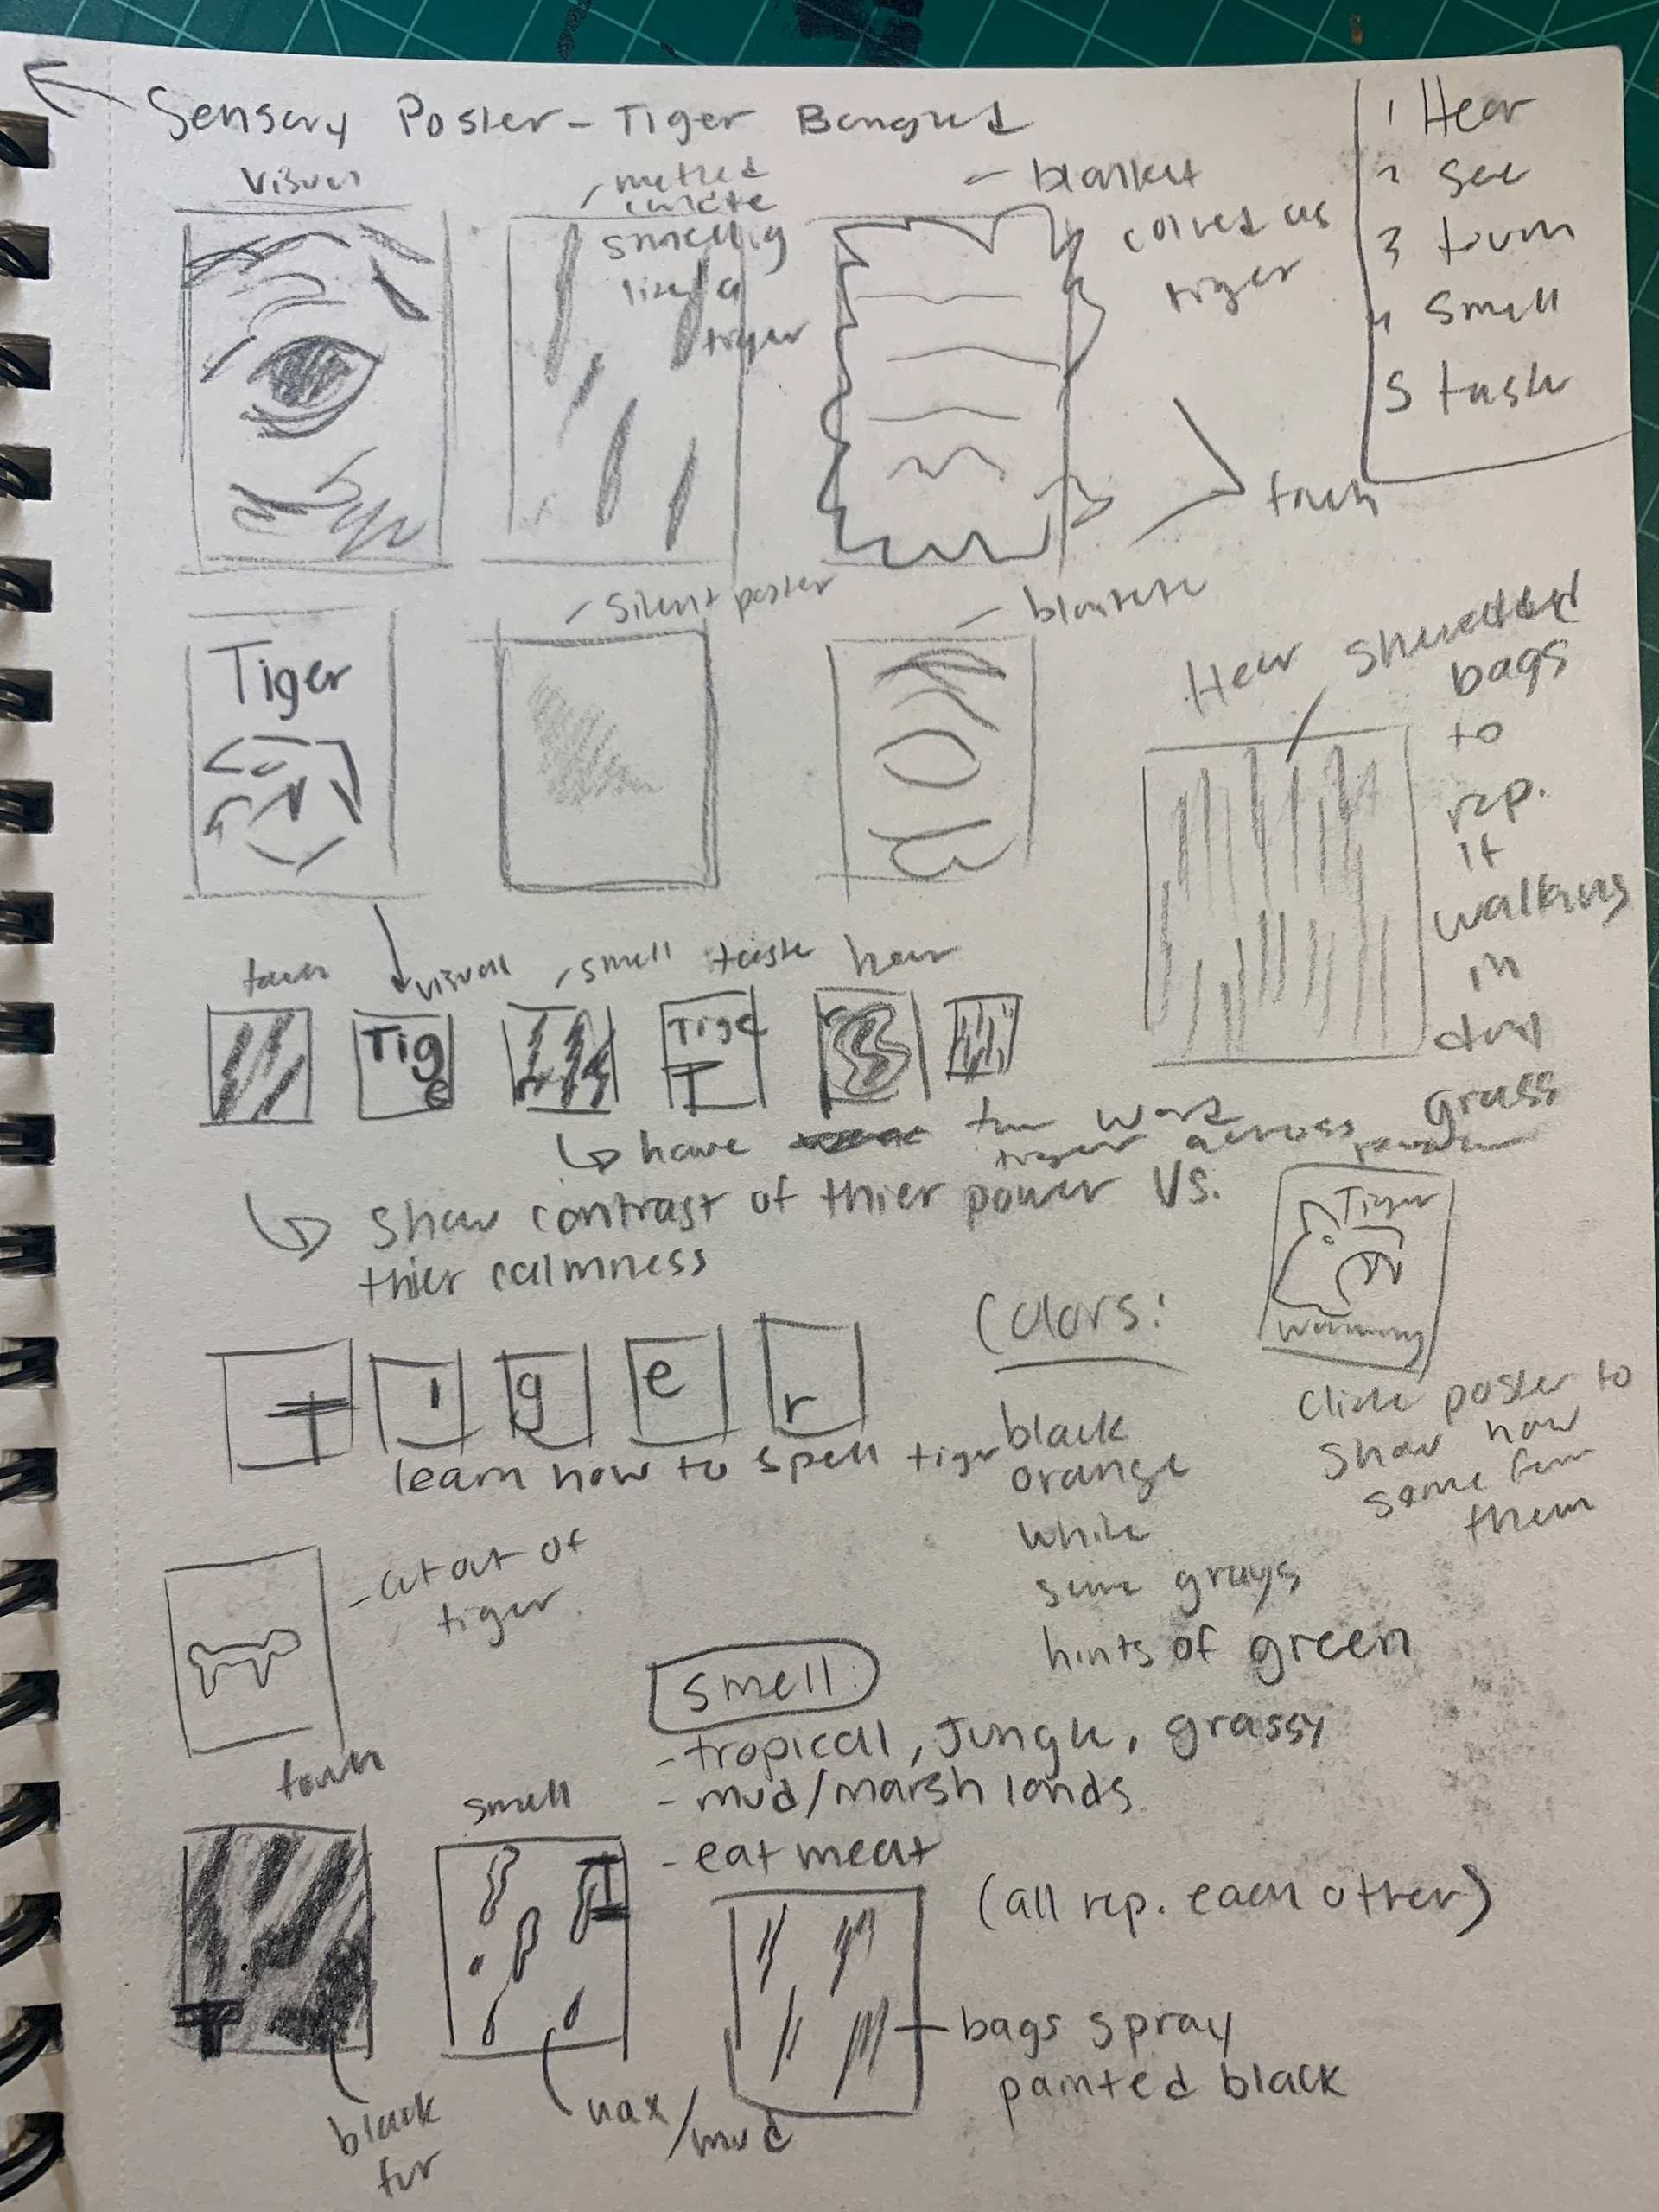 Sensory Poster - Tiger
1 Hear
2 see
3 touch
4 smell
5 taste
visual
- melted candle
smelling
like a
tiger
- blanket
colored as
tiger
touch
- Silent poster
- blankete
Tiger
Hear shredded
bags
to
rep.
it
walking
in
dry
grass
touch
visual
- smell
taste
hear
Tige
Tige
T
have the word
tiger across
show contrast of thier power vs.
thier calmness
T i g e r
learn how to spell tiger
Tiger
Warning
Colors:
black
orange
white
some grays
hints of green
poster to
show how
some
them
- cut out of
tiger
touch
smell
- tropical, Jungle, grassy
- mud/marsh lands
- eat meat
(all rep. each other)
smell
T
T
black
fur
wax/mud
bags spray
painted black